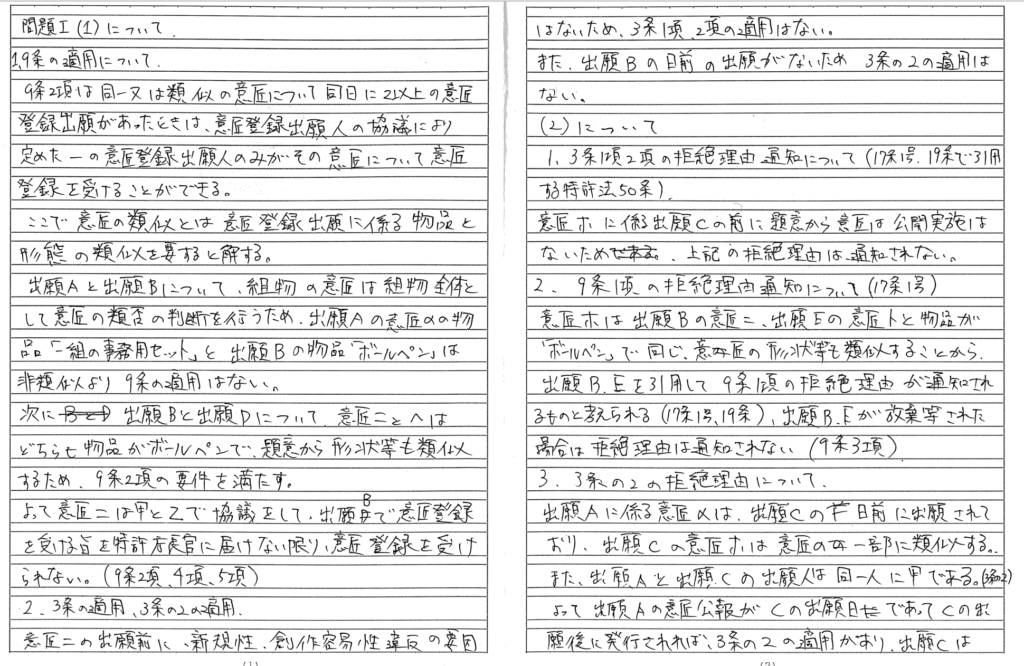 問題Ⅰ(1)について
1,9条の適用について.
9条2項は同一又は類似の意匠について同日に2以上の意匠
登録出願があったときは、意匠登録出願人の協議により
定めた一の意匠登録出願人のみがその意匠について意匠
登録を受けることができる。
ここで意匠の類似とは意匠登録出願に係る物品と
形態の類似を要すると解する。
出願Aと出願Bについて、組物の意匠は組物全体と
して意匠の類否の判断を行うため、出願Aの意匠αの物
品「一組の事務用セット」と出願Bの物品「ボールペン」は
非類似より9条の適用はない。
次に 出願Bと出願Dについて、意匠ニとヘは
どちらも物品がボールペンで、題意から形状等も類似
するため、9条2項の要件を満たす。
よって意匠ニは甲と乙で協議をして、出願Bで意匠登録
を受ける旨を特許庁長官に届けない限り、意匠登録を受け
られない。(9条2項、4項、5項)
2.3条の適用、3条の2の適用.
意匠ニの出願前に、新規性、創作容易性違反の要因
(1)
はないため、3条1項、2項の適用はない。
また、出願Bの日前の出願がないため 3条の2の適用は
ない。
(2)について
1、3条1項2項の拒絶理由通知について(17条1号、19条で引用
する特許法50条)
意匠ホに係る出願Cの前に題意から意匠は公開実施は
ないため 、上記の拒絶理由は通知されない。
2.9条1項の拒絶理由通知について(17条1号)
意匠ホは出願Bの意匠ニ、出願Eの意匠トと物品が
「ボールペン」で同じ、意匠の形状等も類似することから、
出願B、Eを引用して9条1項の拒絶理由が通知され
るものと考えられる(17条1号、19条)、出願B、Eが放棄等された
場合は拒絶理由は通知されない(9条3項)
3.3条の2の拒絶理由について.
出願Aに係る意匠αは、出願Cの 日前に出願されて
おり、出願Cの意匠ホは意匠の 一部に類似する。
また、出願Aと出願Cの出願人は同一人に甲である。(3条の2)
よって出願Aの意匠公報がCの出願日 であってCの出
願後に発行されれば、3条の2の適用があり、出願Cは
(2)